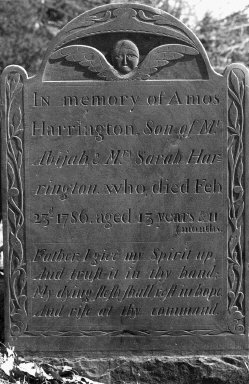 In memory of Amos
Harrington, Son of Mr
Abijah & Mrs Sarah Har-
rington, who, died Feb
23d 1786, aged 13 years & 11
months.
Father I give my Spirit up,
And trust it in thy hands,
My dying flesh shall rest in hope
And rise at thy command.